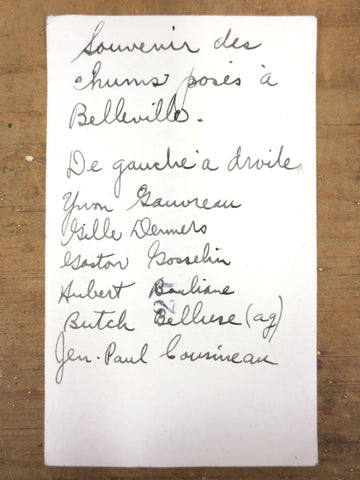 Souvenir des
chums posés à
Belleville.
De gauche à droite
Yvon Gauvreau
Gille Demers
Gaston Gosselin
Hubert Bouliane
Butch Belluse (ag)
Jen-Paul Cousineau